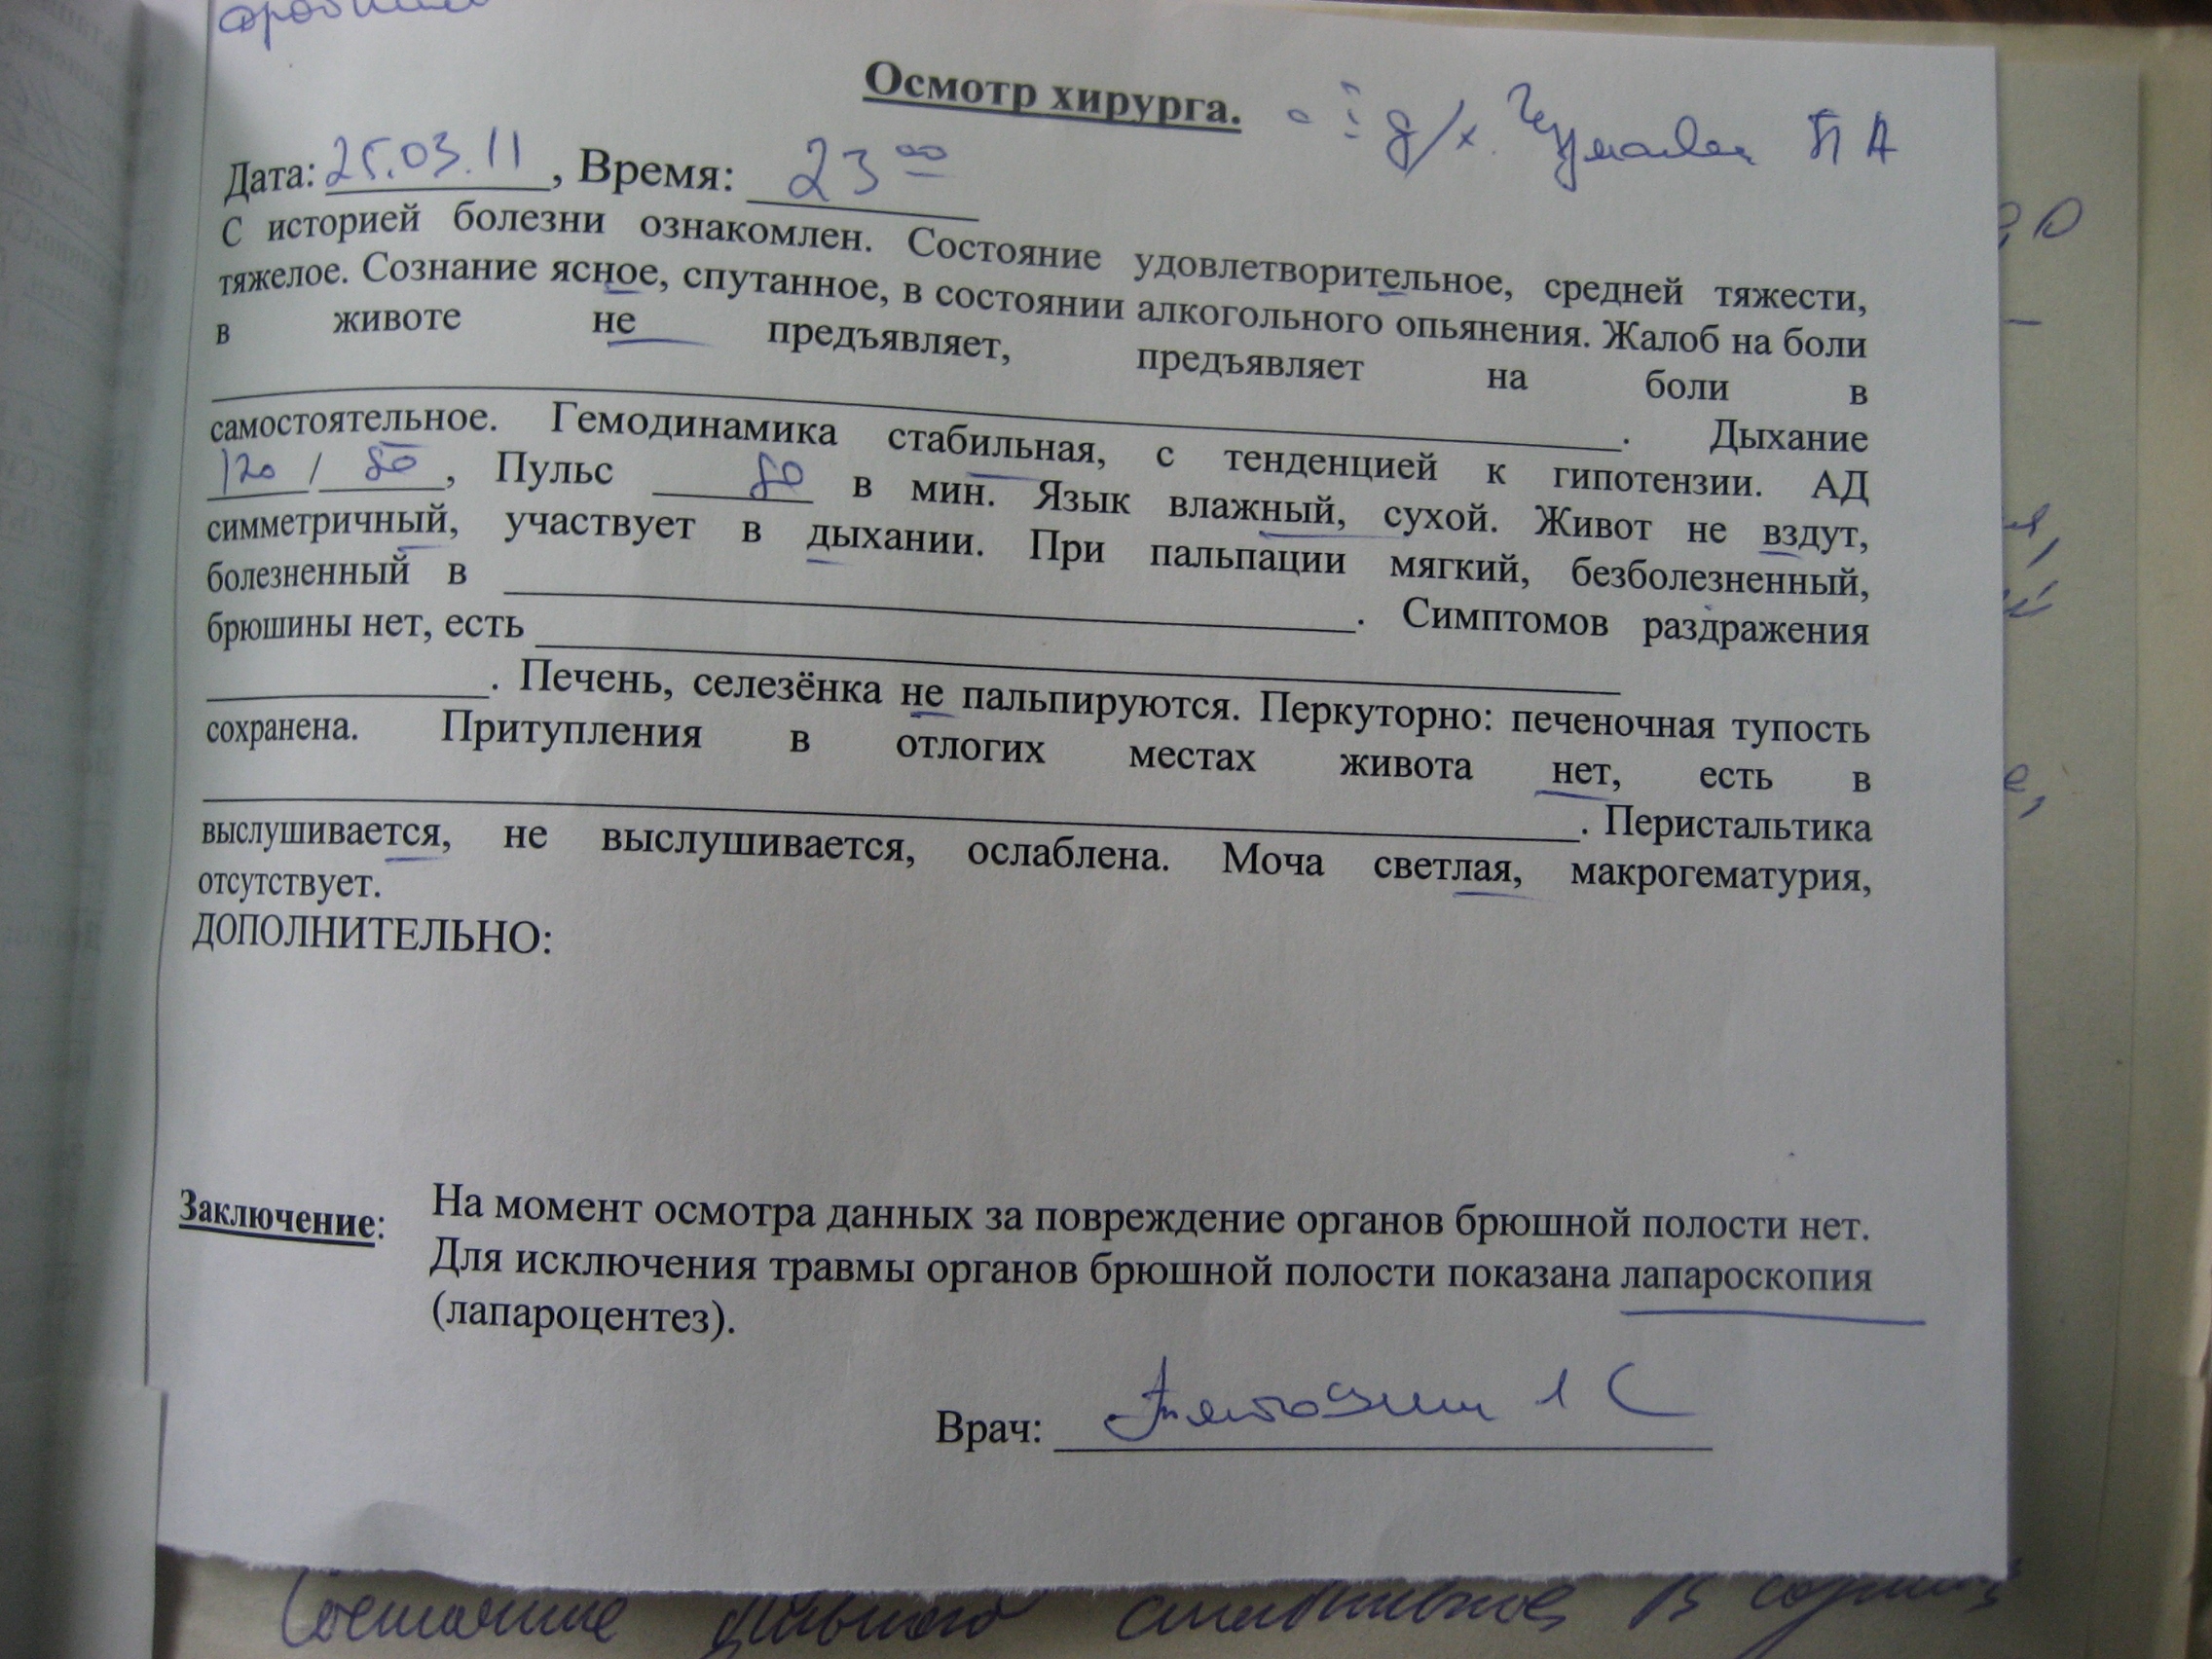 Осмотр хирурга. д/х.
Дата: 25.03.11, Время: 23 00
С историей болезни ознакомлен. Состояние удовлетворительное, средней тяжести,
тяжелое. Сознание ясное, спутанное, в состоянии алкогольного опьянения. Жалоб на боли
в животе не предъявляет, предъявляет на боли в
. Дыхание
самостоятельное. Гемодинамика стабильная, с тенденцией к гипотензии. АД
120 / 80, Пульс 80 в мин. Язык влажный, сухой. Живот не вздут,
симметричный, участвует в дыхании. При пальпации мягкий, безболезненный,
болезненный в . Симптомов раздражения
брюшины нет, есть
. Печень, селезёнка не пальпируются. Перкуторно: печеночная тупость
сохранена. Притупления в отлогих местах живота нет, есть в
. Перистальтика
выслушивается, не выслушивается, ослаблена. Моча светлая, макрогематурия,
отсутствует.
ДОПОЛНИТЕЛЬНО:
Заключение: На момент осмотра данных за повреждение органов брюшной полости нет.
Для исключения травмы органов брюшной полости показана лапароскопия
(лапароцентез).
Врач:
Состояние больного стабильное, В